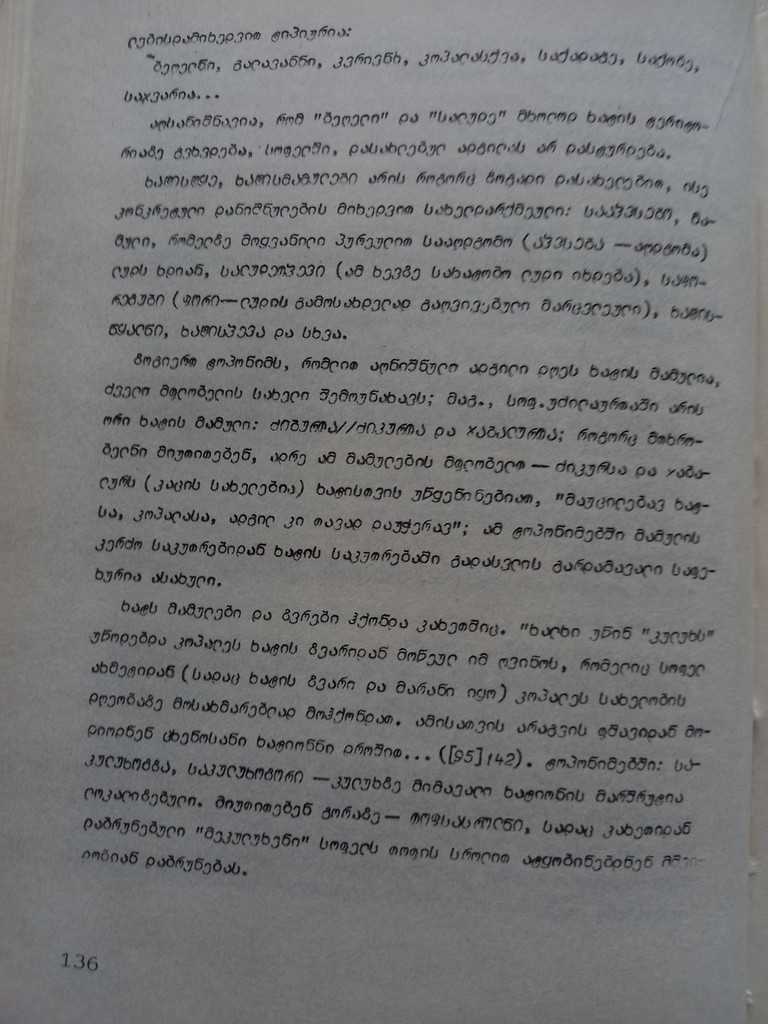 ლებისდამიხედვით ტიპიურია:
ბეღელნი, გალავანნი, კვრივნხ, კოპალასქვა, საქადაგე, საქონე,
საჯვარია...
აღსანიშნავია, რომ "ბეღელი" და "სალუდე" მხოლოდ ხატის ტერიტო-
რიაზე გვხვდება, სოფელში, დასახლებულ ადგილას არ დასტურდება.
ხატისმამულები არის როგორც ზოგადი დასახელებით, ისე
კონკრეტული დანიშნულების მიხედვით სახელდარქმეული: სააჴვსებო, მა-
მული, რომელზე მოყვანილი პურეულით სააღდგომო (აჴვსება — აღდგომა)
ლუდს ხდიან, სალუდეჴევი (ამ ხევზე სახატობო ლუდი იხდება), საფო-
რეგუბი (ფორი—ლუდის გამოსახდელად გაღვივებული მარცვლეული), ხატის-
წყალნი, ხატისჴევა და სხვა.
ზოგიერთ ტოპონიმს, რომლით აღნიშნული ადგილი დღეს ხატის მამულია,
ძველი მფლობელის სახელი შემოუნახავს; მაგ., სოფ.უძილაურთაში არის
ორი ხატის მამული: ძიბურთა//ძიკურთა და ჯაბალურთა; როგორც მთხრო-
ბელნი მიუთითებენ, ადრე ამ მამულების მფლობელთ — ძიკურსა და ჯაბა-
ლურს (კაცის სახელებია) ხატისთვის უწყენინებიათ, "მაუცილებავ ხატ-
სა, კოპალასა, ადგილ კი თავად დაუჭერავ"; ამ ტოპონიმებში მამულის
კერძო საკუთრებიდან ხატის საკუთრებაში გადასვლის გარდამავალი საფე-
ხურია ასახული.
ხატს მამულები და გვრები ჰქონდა კახეთშიც. "ხალხი უწინ "კულუხს"
უწოდებდა კოპალეს ხატის გვარიდან მოწეულ იმ ღვინოს, რომელიც სოფელ
ახმეტიდან (სადაც ხატის გვარი და მარანი იყო) კოპალეს სახელობის
დღეობაზე მოსახმარებლად მოჰქონდათ. ამისათვის არაგვის ფშავიდან მო-
დიოდნენ ცხენოსანი ხატიონნი დროშით... ([95]142). ტოპონიმებში: სა-
კულუხოგზა, საკულუხოგორი — კულუხზე მიმავალი ხატიონის მარშრუტია
ლოკალიზებული. მიუთითებენ გორაზე — თოფსასროლნი, სადაც კახეთიდან
დაბრუნებული "მეკულუხენი" სოფელს თოფის სროლით ატყობინებდნენ მშვი-
დობიან დაბრუნებას.
136